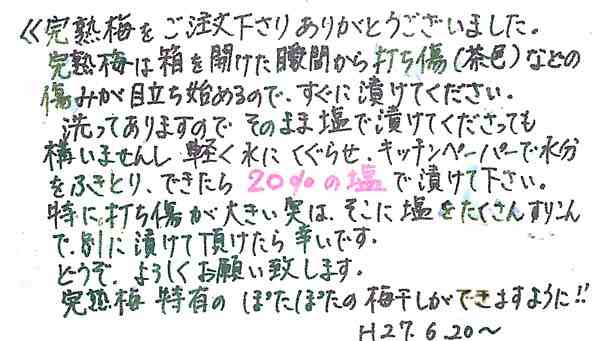 ≪完熟梅をご注文下さりありがとうございました。
完熟梅は箱を開けた瞬間から打ち傷(茶色)などの
傷みが目立ち始めるので、すぐに漬けてください。
洗ってありますのでそのまま塩で漬けてくださっても
構いませんし軽く水にくぐらせ、キッチンペーパーで水分
をふきとり、できたら20%の塩で漬けて下さい。
特に打ち傷が大きい実は、そこに塩をたくさんすりこん
で、別に漬けて頂けたら幸いです。
どうぞ、よろしくお願い致します。
完熟梅特有のぽたぽたの梅干しができますように!!
H27.6.20〜